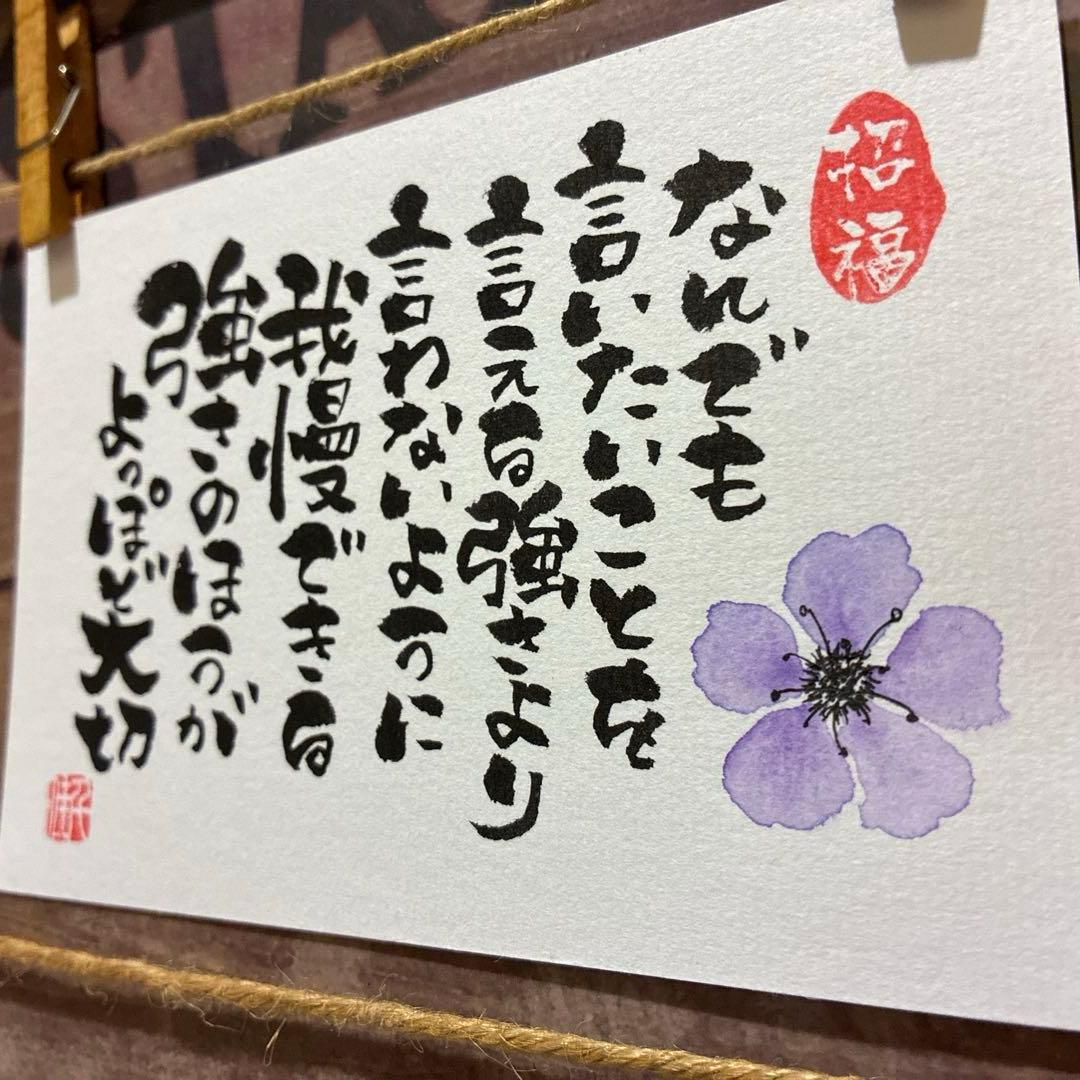 招福
なんでも
言いたいことを
言える強さより
言わないように
我慢できる
強さのほうが
よっぽど大切